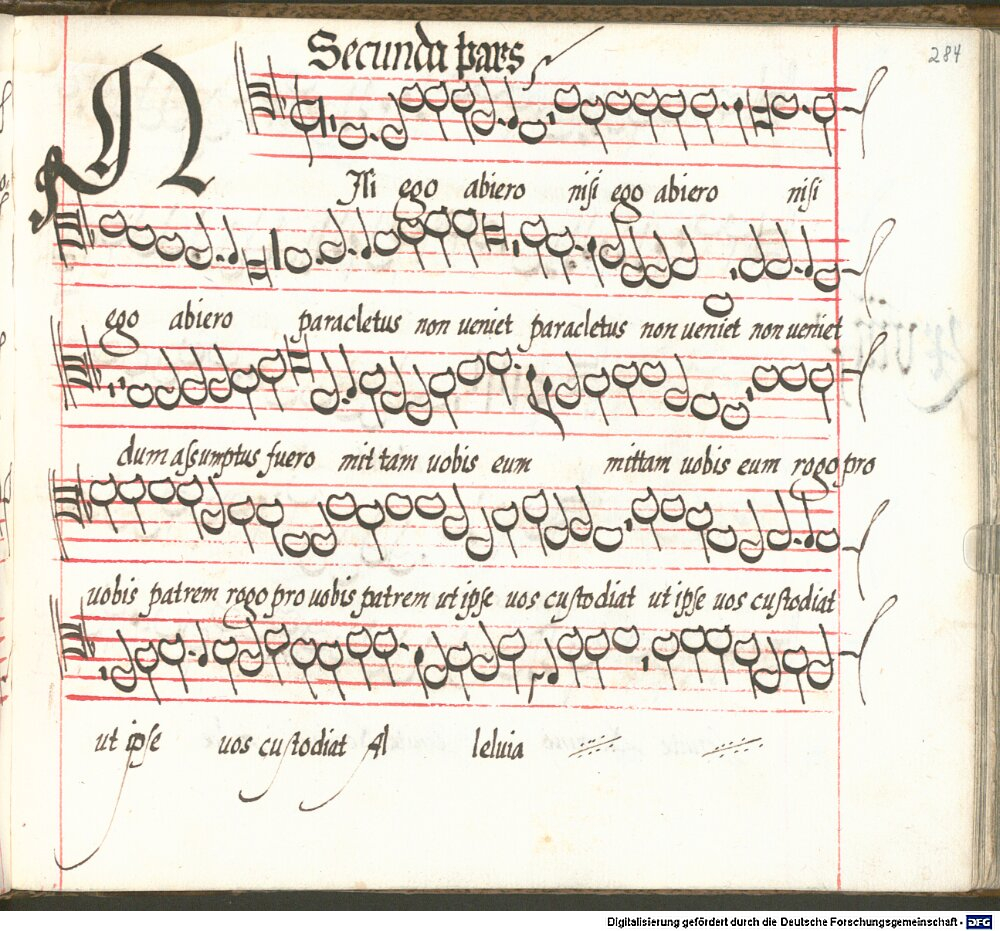 Secunda pars
284
NIſi ego abiero niſi ego abiero niſi
ego abiero paracletus non ueniet paracletus non ueniet non ueniet
dum aſsumptus fuero mittam uobis eum mittam uobis eum rogo pro
uobis patrem rogo pro uobis patrem ut ipſe uos cuſtodiat ut ipſe uos cuſtodiat
ut ipſe uos cuſtodiat Al leluia
Digitalisierung gefördert durch die Deutsche Forschungsgemeinschaft - DFG